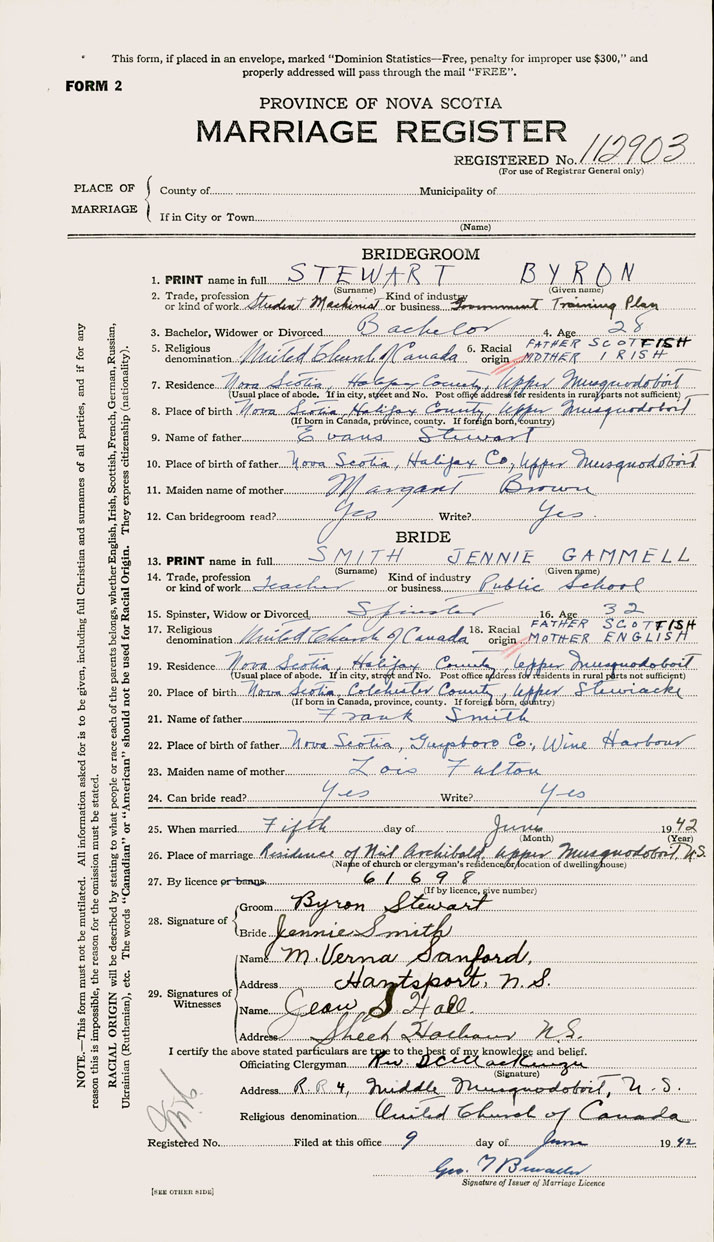 This form, if placed in an envelope, marked "Dominion Statistics—Free, penalty for improper use $300," and
properly addressed will pass through the mail "FREE".
FORM 2
PROVINCE OF NOVA SCOTIA
MARRIAGE REGISTER
REGISTERED No. 112903
(For use of Registrar General only)
PLACE OF MARRIAGE
County of Municipality of
If in City or Town
(Name)
BRIDEGROOM
1. PRINT name in full STEWART BYRON
(Surname) (Given name)
2. Trade, profession or kind of work Student Machinist Kind of industry or business Government Training Plan
3. Bachelor, Widower or Divorced Bachelor 4. Age 28
5. Religious denomination United Church of Canada 6. Racial origin FATHER SCOTTISH MOTHER IRISH
7. Residence Nova Scotia, Halifax County, Upper Musquodoboit
(Usual place of abode. If in city, street and No. Post office address for residents in rural parts not sufficient)
8. Place of birth Nova Scotia, Halifax County, Upper Musquodoboit
(If born in Canada, province, county. If foreign born, country)
9. Name of father Evans Stewart
10. Place of birth of father Nova Scotia, Halifax Co, Upper Musquodoboit
11. Maiden name of mother Margaret Brown
12. Can bridegroom read? Yes Write? Yes.
BRIDE
13. PRINT name in full SMITH JENNIE GAMMELL
(Surname) (Given name)
14. Trade, profession or kind of work Teacher Kind of industry or business Public School
15. Spinster, Widow or Divorced Spinster 16. Age 32
17. Religious denomination United Church of Canada 18. Racial origin FATHER SCOTTISH MOTHER ENGLISH
19. Residence Nova Scotia, Halifax County, Upper Musquodoboit
(Usual place of abode. If in city, street and No. Post office address for residents in rural parts not sufficient)
20. Place of birth Nova Scotia, Colchester County, Upper Stewiacke
(If born in Canada, province, county. If foreign born, country)
21. Name of father Frank Smith
22. Place of birth of father Nova Scotia, Guysboro Co., Wine Harbour
23. Maiden name of mother Lois Fulton
24. Can bride read? Yes Write? Yes
25. When married Fifth day of June 1942
(Month) (Year)
26. Place of marriage Residence of Neil Archibald, Upper Musquodoboit, N.S.
(Name of church or clergyman's residence or location of dwelling house)
27. By licence or banns 61698
(If by licence, give number)
28. Signature of
Groom Byron Stewart
Bride Jennie Smith
29. Signatures of Witnesses
Name M. Verna Sanford,
Address Hantsport, N.S.
Name Jean S Hall.
Address Sheet Harbour N.S.
I certify the above stated particulars are true to the best of my knowledge and belief.
Officiating Clergyman Rev MacKenzie
(Signature)
Address R.R 4, Middle Musquodoboit, N.S.
Religious denomination United Church of Canada
Registered No. Filed at this office 9 day of June 1942
Geo.
Signature of Issuer of Marriage Licence
[SEE OTHER SIDE]
NOTE.—This form must not be mutilated. All information asked for is to be given, including full Christian and surnames of all parties, and if for any
reason this is impossible, the reason for the omission must be stated.
RACIAL ORIGIN will be described by stating to what people or race each of the parents belongs, whether English, Irish, Scottish, French, German, Russian,
Ukrainian (Ruthenian), etc. The words "Canadian" or "American" should not be used for Racial Origin. They express citizenship (nationality).